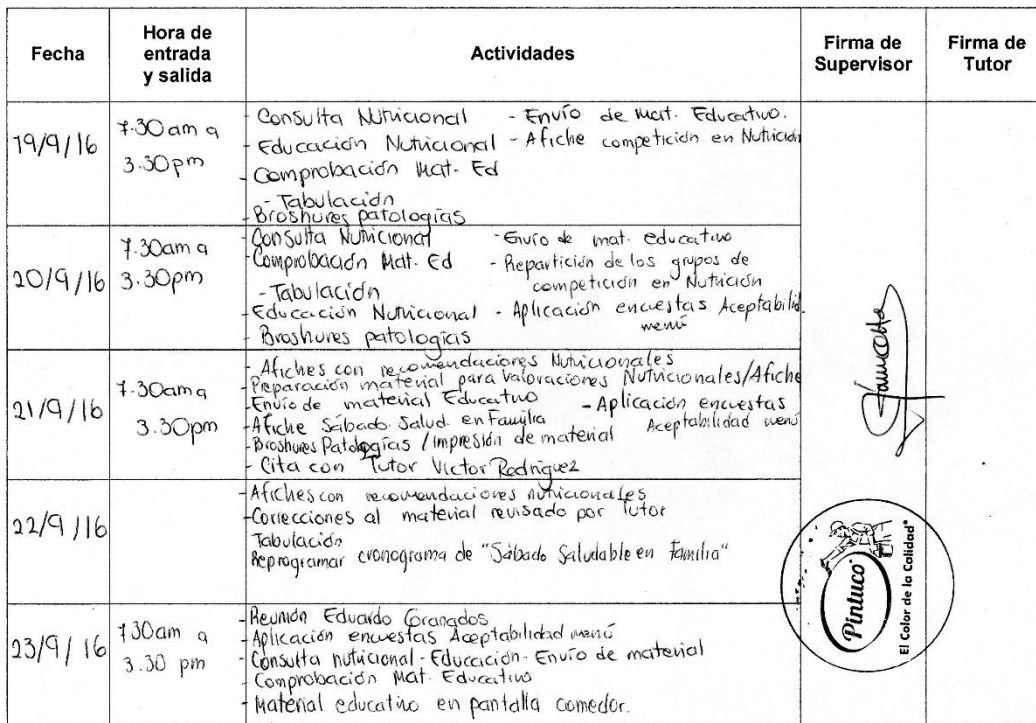 Fecha
Hora de
entrada
y salida
Actividades
Firma de
Supervisor
Firma de
Tutor
19/9/16
7.30 am a
3.30pm
- Consulta Nutricional - Envío de Mat. Educativo.
- Educación Nutricional - Afiche competición en Nutrición
- Comprobación Mat. Ed
- Tabulación
- Broshures patologías
20/9/16
7.30am a
3.30pm
- Consulta Nutricional - Envío de mat. educativo
- Comprobación Mat. Ed - Repartición de los grupos de
competición en Nutrición
- Tabulación
- Educación Nutricional - Aplicación encuestas Aceptabilid.
menú
- Broshures patologías
21/9/16
7.30am a
3.30pm
- Afiches con recomendaciones Nutricionales
- Preparación material para Valoraciones Nutricionales/Afiche
- Envío de material Educativo - Aplicación encuestas
- Afiche Sábado Salud. en Familia Aceptabilidad menú
- Broshures Patologías / Impresión de material
- Cita con Tutor Victor Rodriguez
22/9/16
- Afiches con recomendaciones nutricionales
- Correcciones al material revisado por Tutor
Tabulación
Reprogramar cronograma de "Sábado Saludable en Familia"
23/9/16
730am a
3.30 pm
- Reunión Eduardo Granados
- Aplicación encuestas Aceptabilidad menú
- Consulta nutricional - Educación - Envío de material
- Comprobación Mat. Educativo
- Material educativo en pantalla comedor.
Pintuco
El Color de la Calidad®